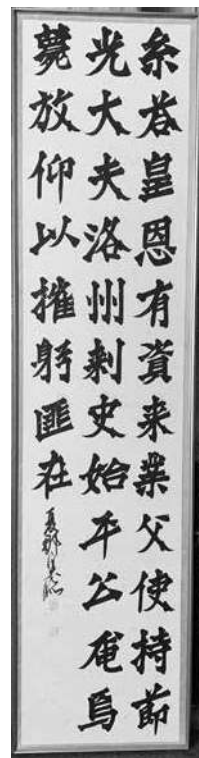 糸荅皇恩有資来業父使持節
光大夫洛州剌史始平公奄焉
薨放仰以摧躬匪在